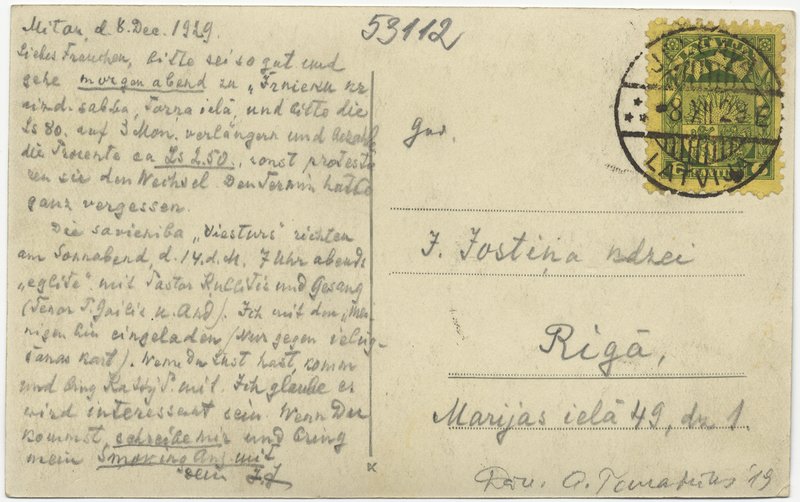 Mitau, d. 8. Dec. 1929.
Liebes Frauchen, bitte sei so gut und
gehe morgen abend zu „
savd. sabba, ielā, und bitte die
Ls 80. auf 3 Mon. verlängern und bezahle
die Prozente ca Ls 2.50., sonst protestie
ren sie den Wechsel. Den Termin hatte
ganz vergessen.
Die savieniba „Viesturs" richten
am Sonnabend, d. 14. d. M. 7 Uhr abends
„eglite" mit Pastor Kullitis und Gesang
(Tenor P. Gailis u. And). Ich mit den „Mei
nigen bin eingeladen (Nur gegen ielūg-
šanas kart). Wenn Du Lust hast, komm
und bring mit. Ich glaube es
wird interessant sein. Wenn Du
kommst, schreibe mir und bring
mein Smoking Anz mit
Dein JJ
53112
JELGAVA
LATVIJA
-8 XII 29
LATVIJĀ
God.
J. Jostiņa kdzei
Rīgā,
Marijas ielā 49, dz. 1.
K
Dāv. '19